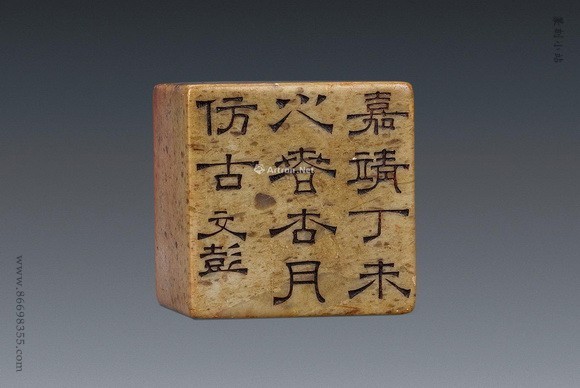 嘉靖丁未
之春杏月
仿古文彭
Artron.Net
篆刻小站
www.86698355.com